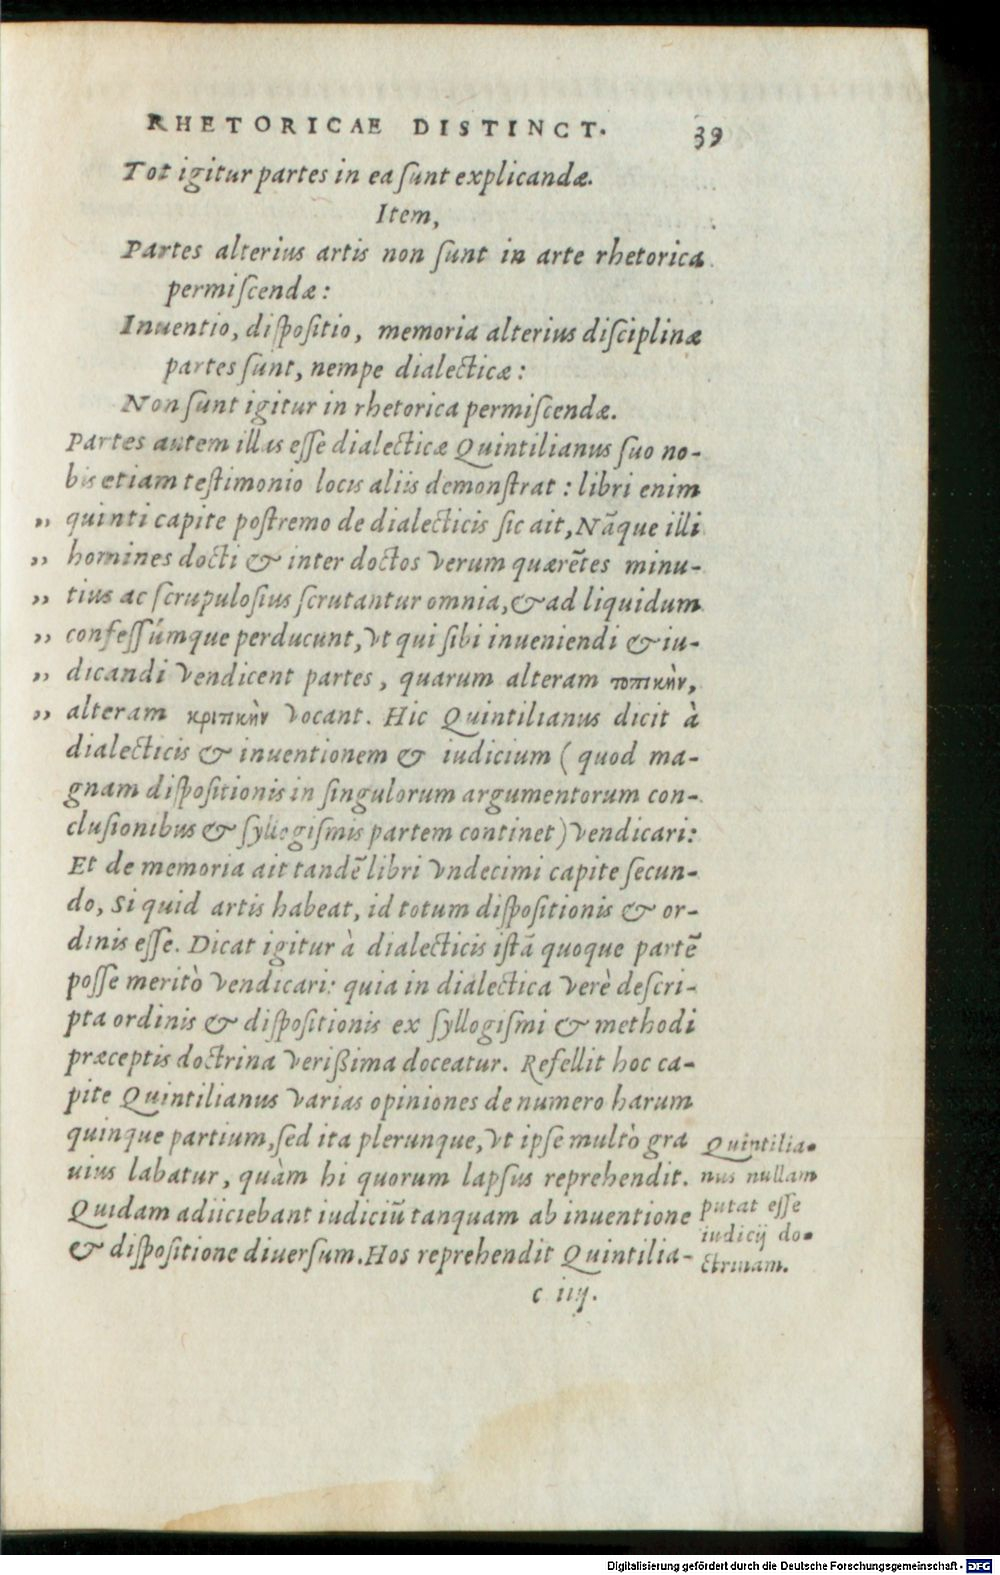 RHETORICAE DISTINCT. 39
Tot igitur partes in ea ſunt explicandæ.
Item,
Partes alterius artis non ſunt in arte rhetorica
permiſcendæ:
Inuentio, diſpoſitio, memoria alterius diſciplinæ
partes ſunt, nempe dialecticæ:
Non ſunt igitur in rhetorica permiſcendæ.
Partes autem illas eſſe dialecticæ Quintilianus ſuo no-
bis etiam teſtimonio locis aliis demonſtrat: libri enim
„ quinti capite poſtremo de dialecticis ſic ait, Nãque illi
„ homines docti & inter doctos verum quærẽtes minu-
„ tius ac ſcrupuloſius ſcrutantur omnia, & ad liquidum
„ confeſſúmque perducunt, vt qui ſibi inueniendi & iu-
„ dicandi vendicent partes, quarum alteram τοπικὴν,
„ alteram κριτικὴν vocant. Hic Quintilianus dicit à
dialecticis & inuentionem & iudicium (quod ma-
gnam diſpoſitionis in ſingulorum argumentorum con-
cluſionibus & ſyllogiſmis partem continet) vendicari:
Et de memoria ait tandẽ libri vndecimi capite ſecun-
do, Si quid artis habeat, id totum diſpoſitionis & or-
dinis eſſe. Dicat igitur à dialecticis iſtã quoque partẽ
poſſe meritò vendicari: quia in dialectica verè deſcri-
pta ordinis & diſpoſitionis ex ſyllogiſmi & methodi
præceptis doctrina verißima doceatur. Refellit hoc ca-
pite Quintilianus varias opiniones de numero harum
quinque partium, ſed ita plerunque, vt ipſe multò gra
uius labatur, quàm hi quorum lapſus reprehendit.
Quidam adiiciebant iudiciũ tanquam ab inuentione
& diſpoſitione diuerſum. Hos reprehendit Quintilia-
Quintilia-
nus nullam
putat eſſe
iudicij do-
ctrinam.
c iiij.
Digitalisierung gefördert durch die Deutsche Forschungsgemeinschaft - DFG